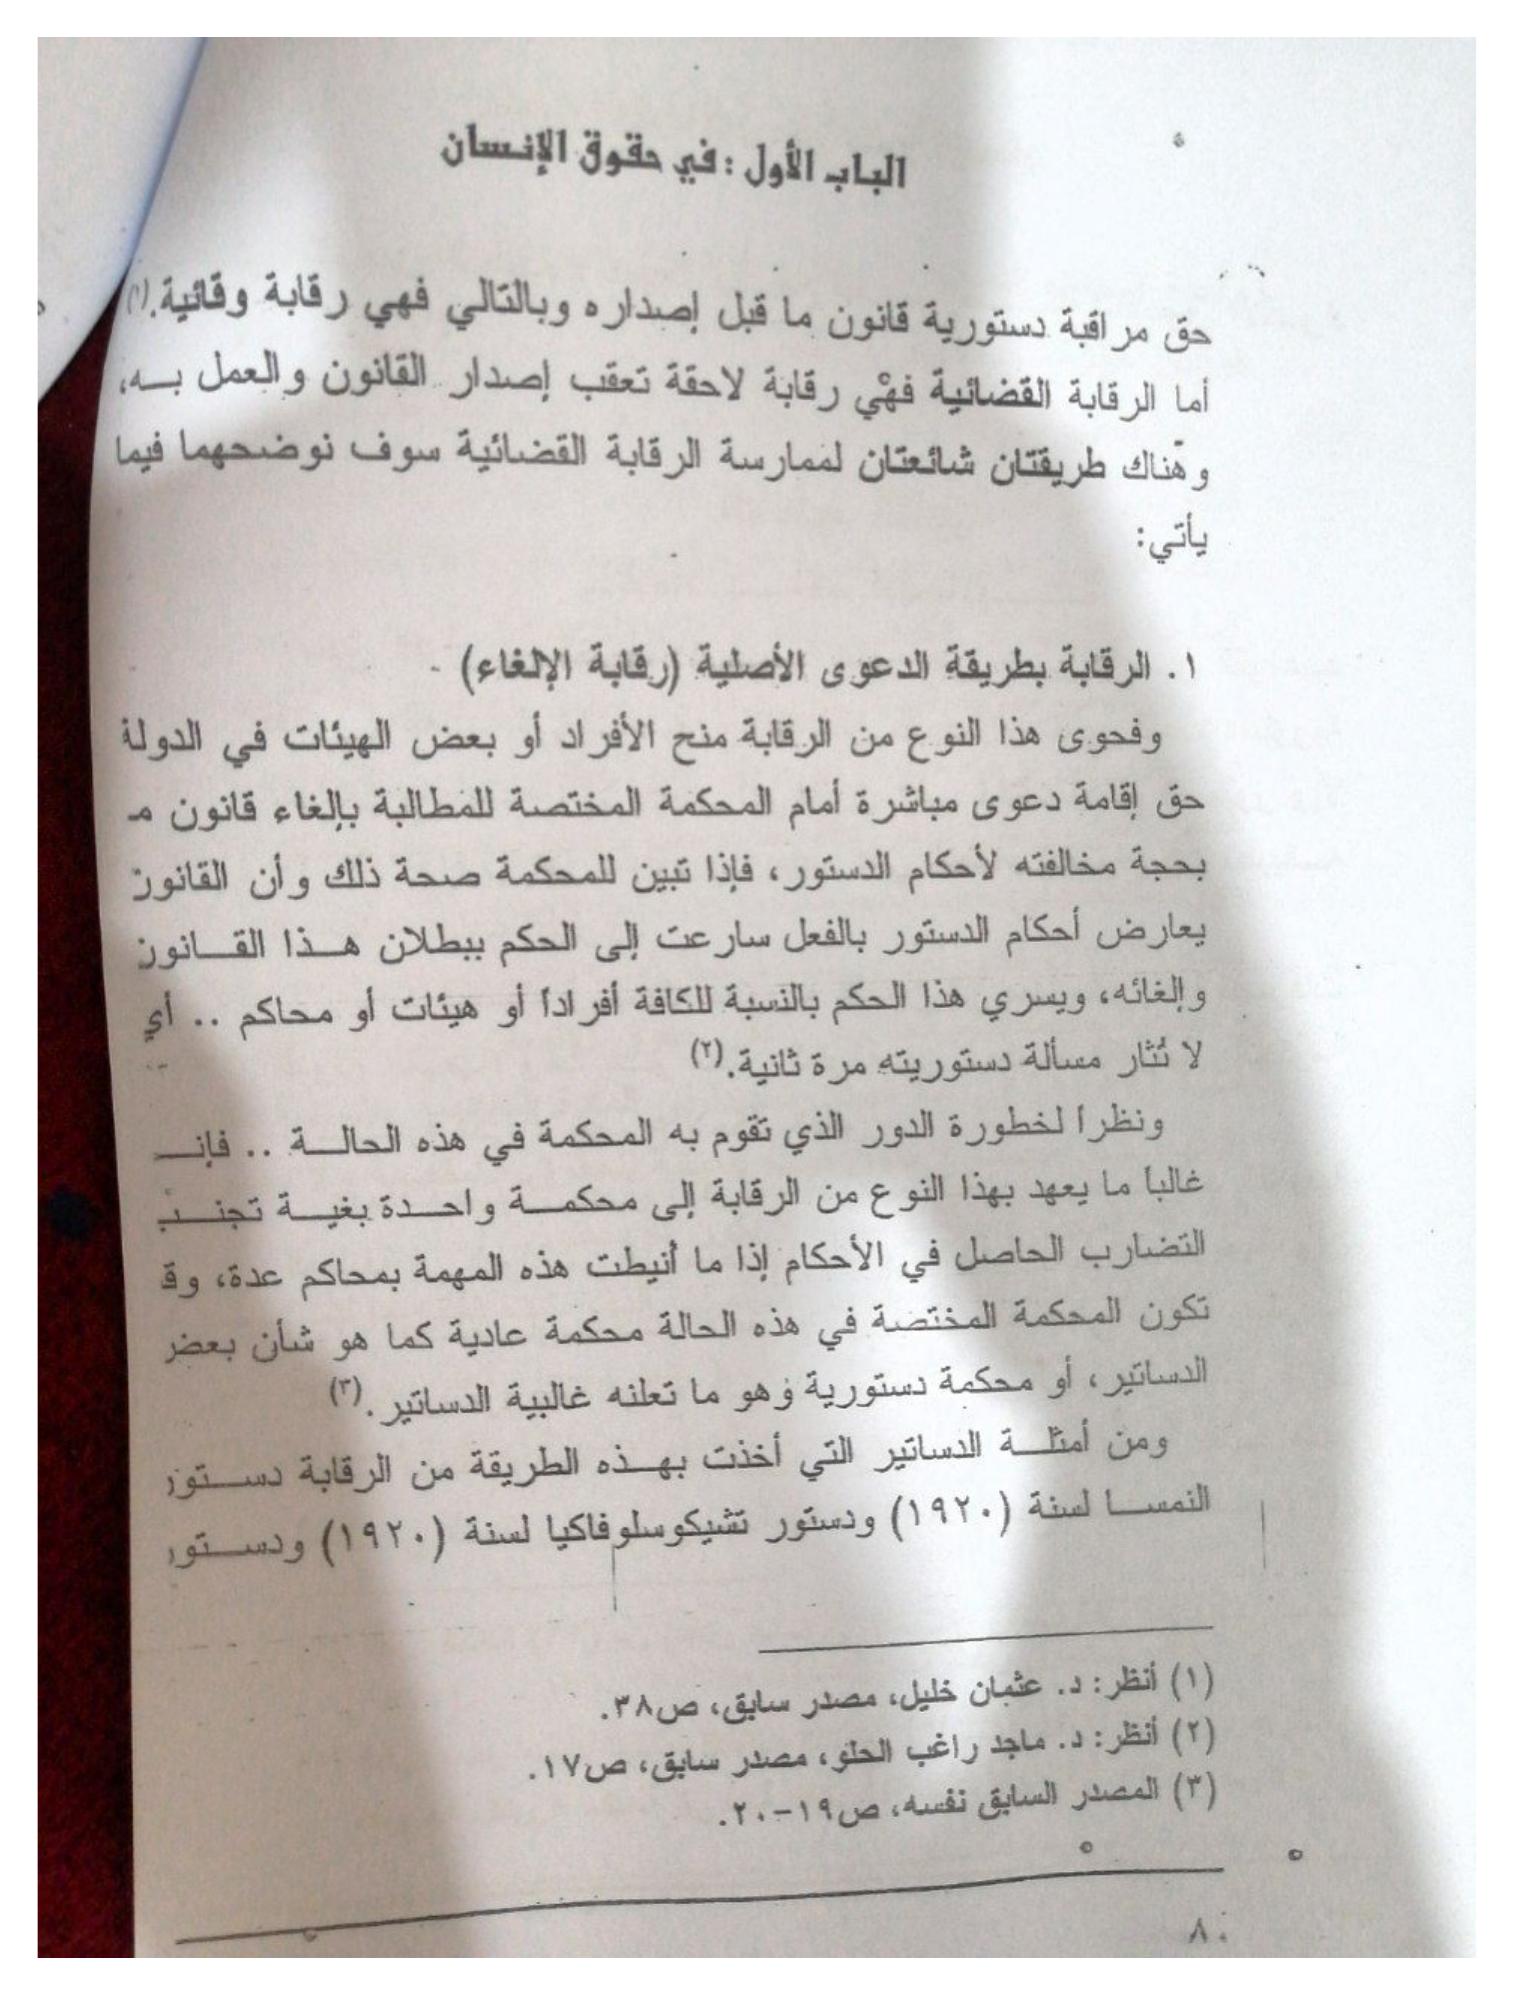 الباب الأول : في حقوق الإنسان
حق مراقبة دستورية قانون ما قبل إصداره وبالتالي فهي رقابة وقائية.(١)
أما الرقابة القضائية فهي رقابة لاحقة تعقب إصدار القانون والعمل بـه،
وهناك طريقتان شائعتان لممارسة الرقابة القضائية سوف نوضحهما فيما
يأتي:
١. الرقابة بطريقة الدعوى الأصلية (رقابة الإلغاء)
وفحوى هذا النوع من الرقابة منح الأفراد أو بعض الهيئات في الدولة
حق إقامة دعوى مباشرة أمام المحكمة المختصة للمطالبة بإلغاء قانون مـ
بحجة مخالفته لأحكام الدستور، فإذا تبين للمحكمة صحة ذلك وأن القانون
يعارض أحكام الدستور بالفعل سارعت إلى الحكم ببطلان هـذا القـانون
وإلغائه، ويسري هذا الحكم بالنسبة للكافة أفراداً أو هيئات أو محاكم .. أي
لا تُثار مسألة دستوريته مرة ثانية.(٢)
ونظراً لخطورة الدور الذي تقوم به المحكمة في هذه الحالـة .. فإنـ
غالباً ما يعهد بهذا النوع من الرقابة إلى محكمـة واحـدة بغيـة تجنـب
التضارب الحاصل في الأحكام إذا ما أنيطت هذه المهمة بمحاكم عدة، وقـ
تكون المحكمة المختصة في هذه الحالة محكمة عادية كما هو شأن بعض
الدساتير، أو محكمة دستورية وهو ما تعلنه غالبية الدساتير.(٣)
ومن أمثلـة الدساتير التي أخذت بهـذه الطريقة من الرقابة دسـتور
النمسـا لسنة (١٩٢٠) ودستور تشيكوسلوفاكيا لسنة (١٩٢٠) ودسـتور
(١) أنظر: د. عثمان خليل، مصدر سابق، ص٣٨.
(٢) أنظر: د. ماجد راغب الحلو، مصدر سابق، ص١٧.
(٣) المصدر السابق نفسه، ص١٩-٢٠.
٨٠